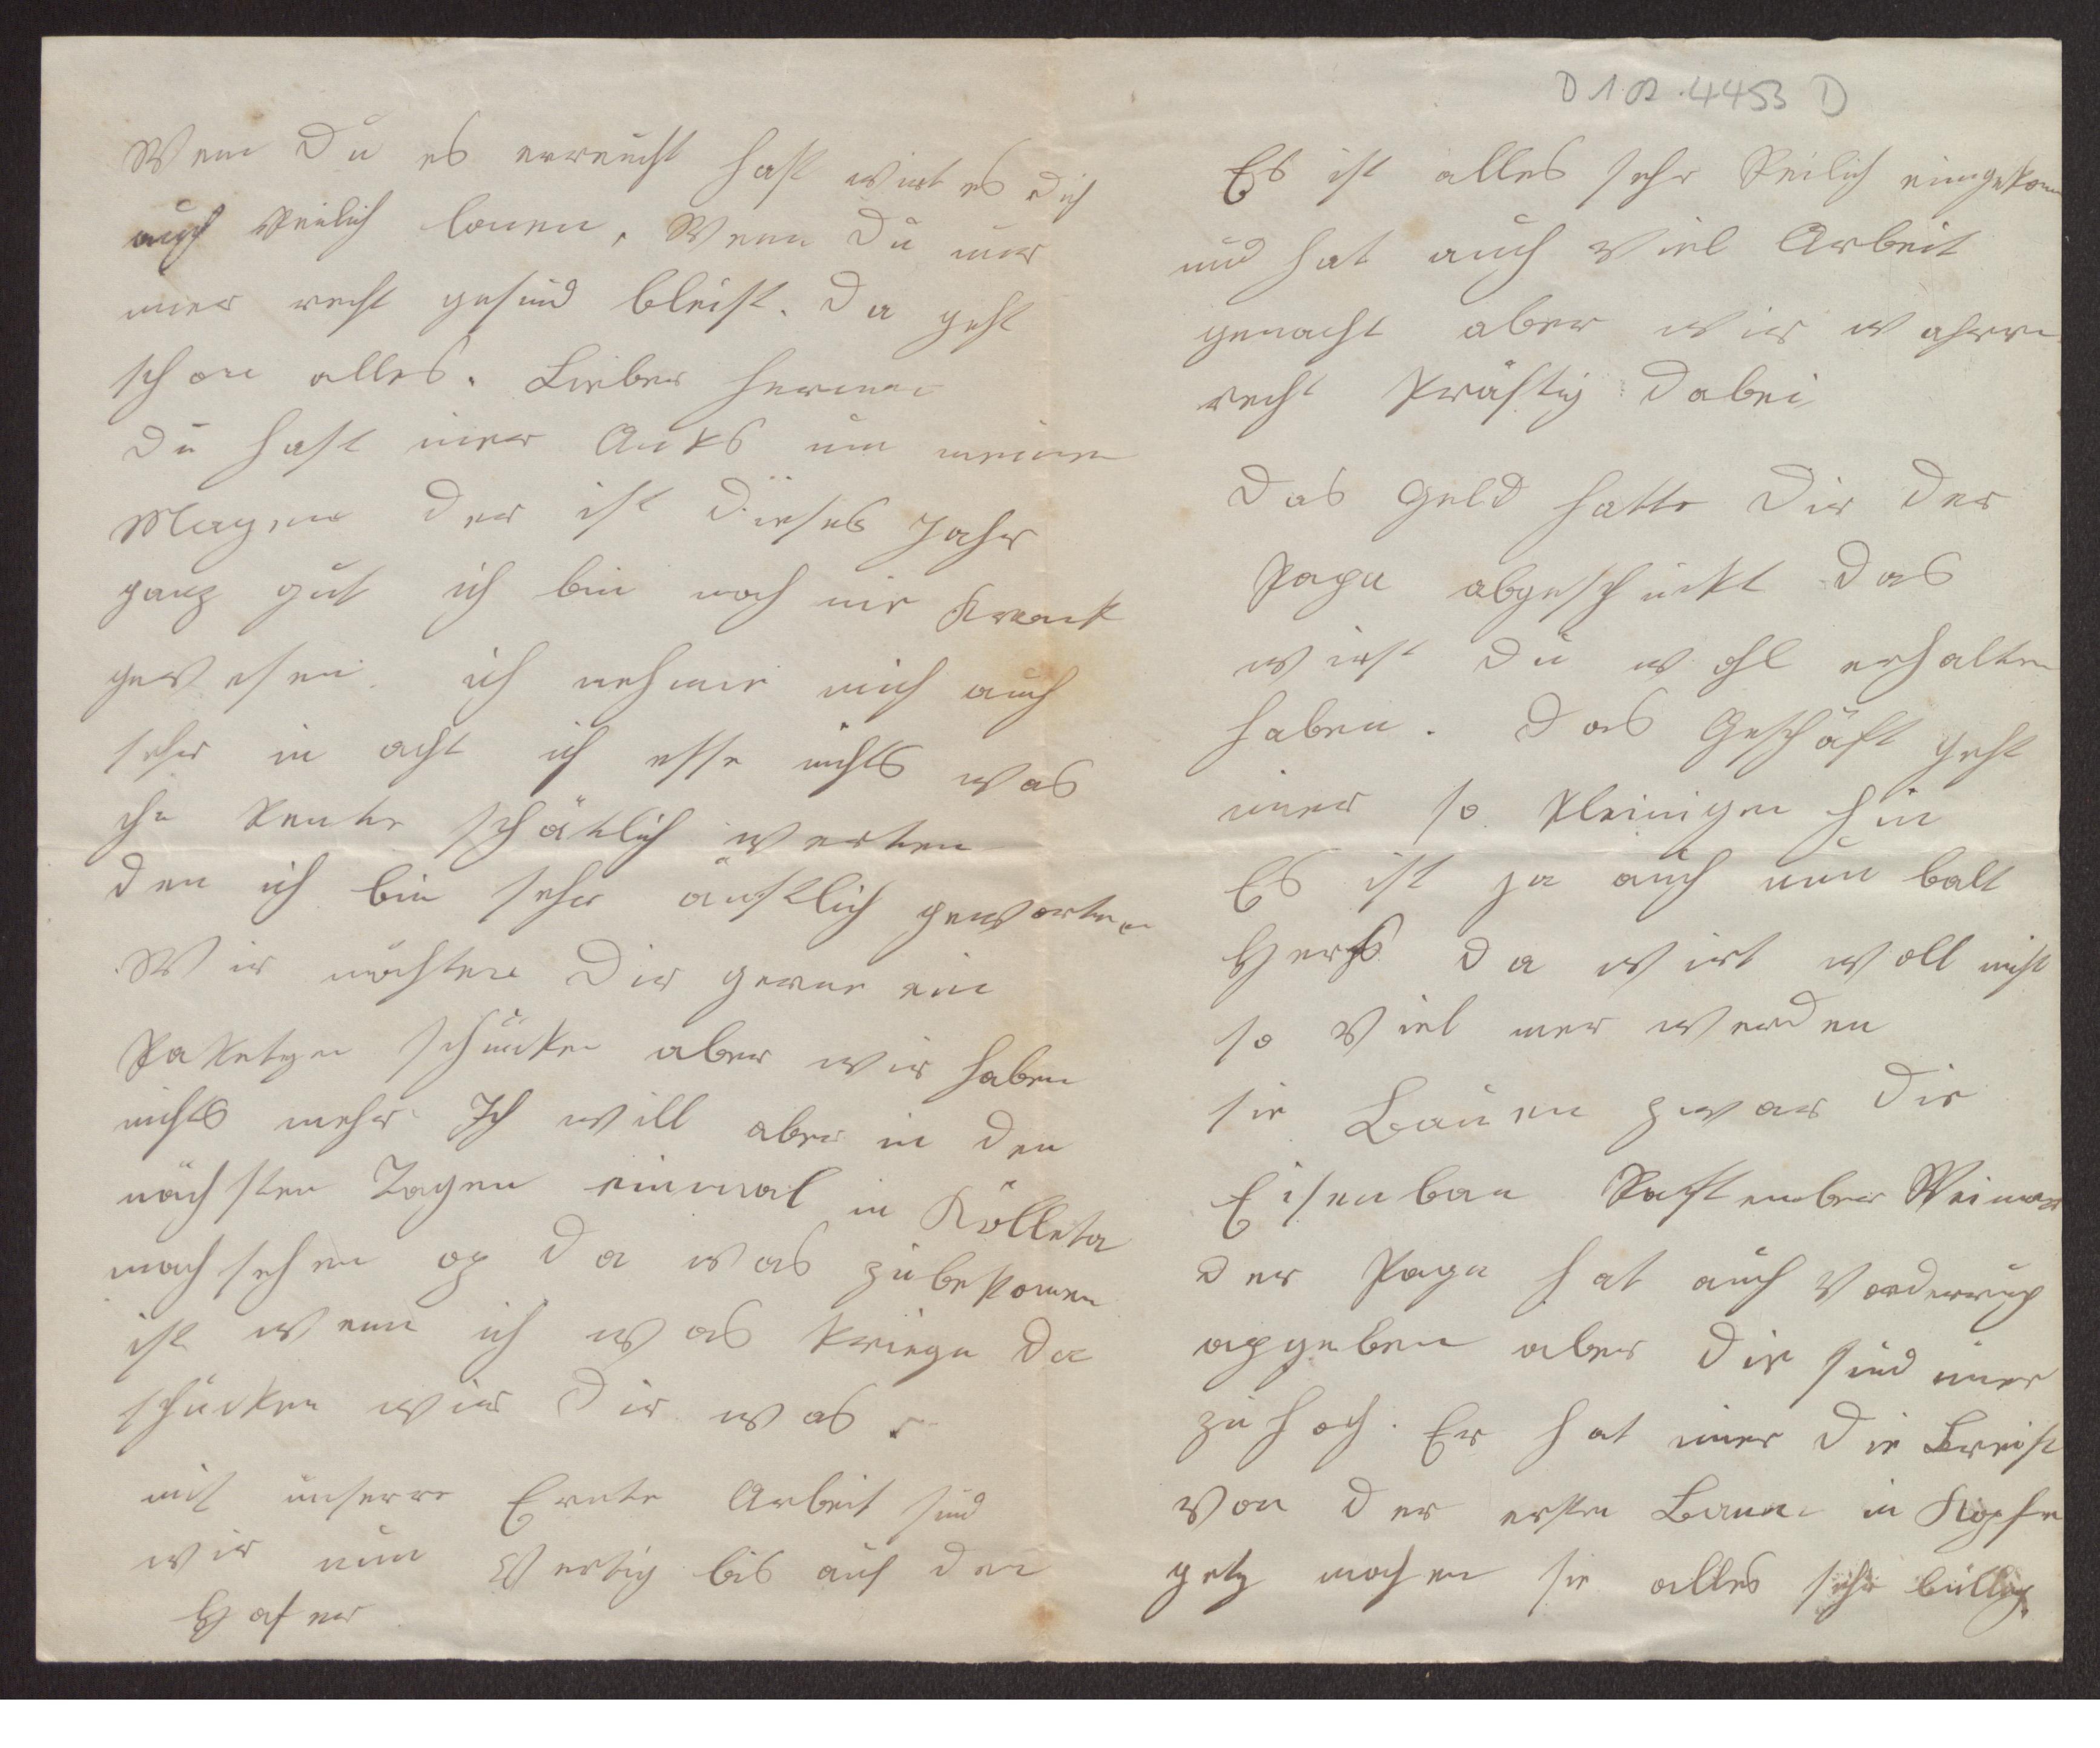 Wenn Du es erreicht hast wirt es dich
auch Reilich lonen, Wenn Du nur
imer recht gesund bleist. Da geht
schon alles. Lieber Herman
Du hast imer Anks um meinen
Magen der ist dieses Jahr
ganz gut ich bin noch nie Krank
gewesen. ich nehme mich auch
sehr in acht ich esse nichts was
ihn kente schätlich werten
den ich bin sehr änstlich geworten
Wir möchten Dir gerne ein
Paketgen schücken aber wir haben
nichts mehr Ich will aber in den
nächsten Tagen einmal in Kölleta
nach sehen op da was zubekomen
ist wenn ich was kriege da
schücken wir Dir was.
mit unserre Ernte Arbeit sind
wir nun Vertig bis auf den
Hafer
D 1.02.4453 D
Es ist alles sehr Reilich eingekom
und hat auch Viel Arbeit
gemacht aber wir wahren
recht kräftig dabei
Das Geld hatte Dir der
Papa abgeschückt das
wirst Du wohl erhalten
haben. Das Geschäft geht
imer so kleinigen hin
Es ist ja auch nun balt
Herbst da wirt woll nicht
so Viel mer werden
sie Bauen zwar die
Eisenban Rastenber Weimar
der Papa hat auch Vorderrung
apgeben aber die sind imer
zu hoch. Er hat imer die Breise
Von der ersten Bann in Kopfe
getz machen sie alles sehr büllig